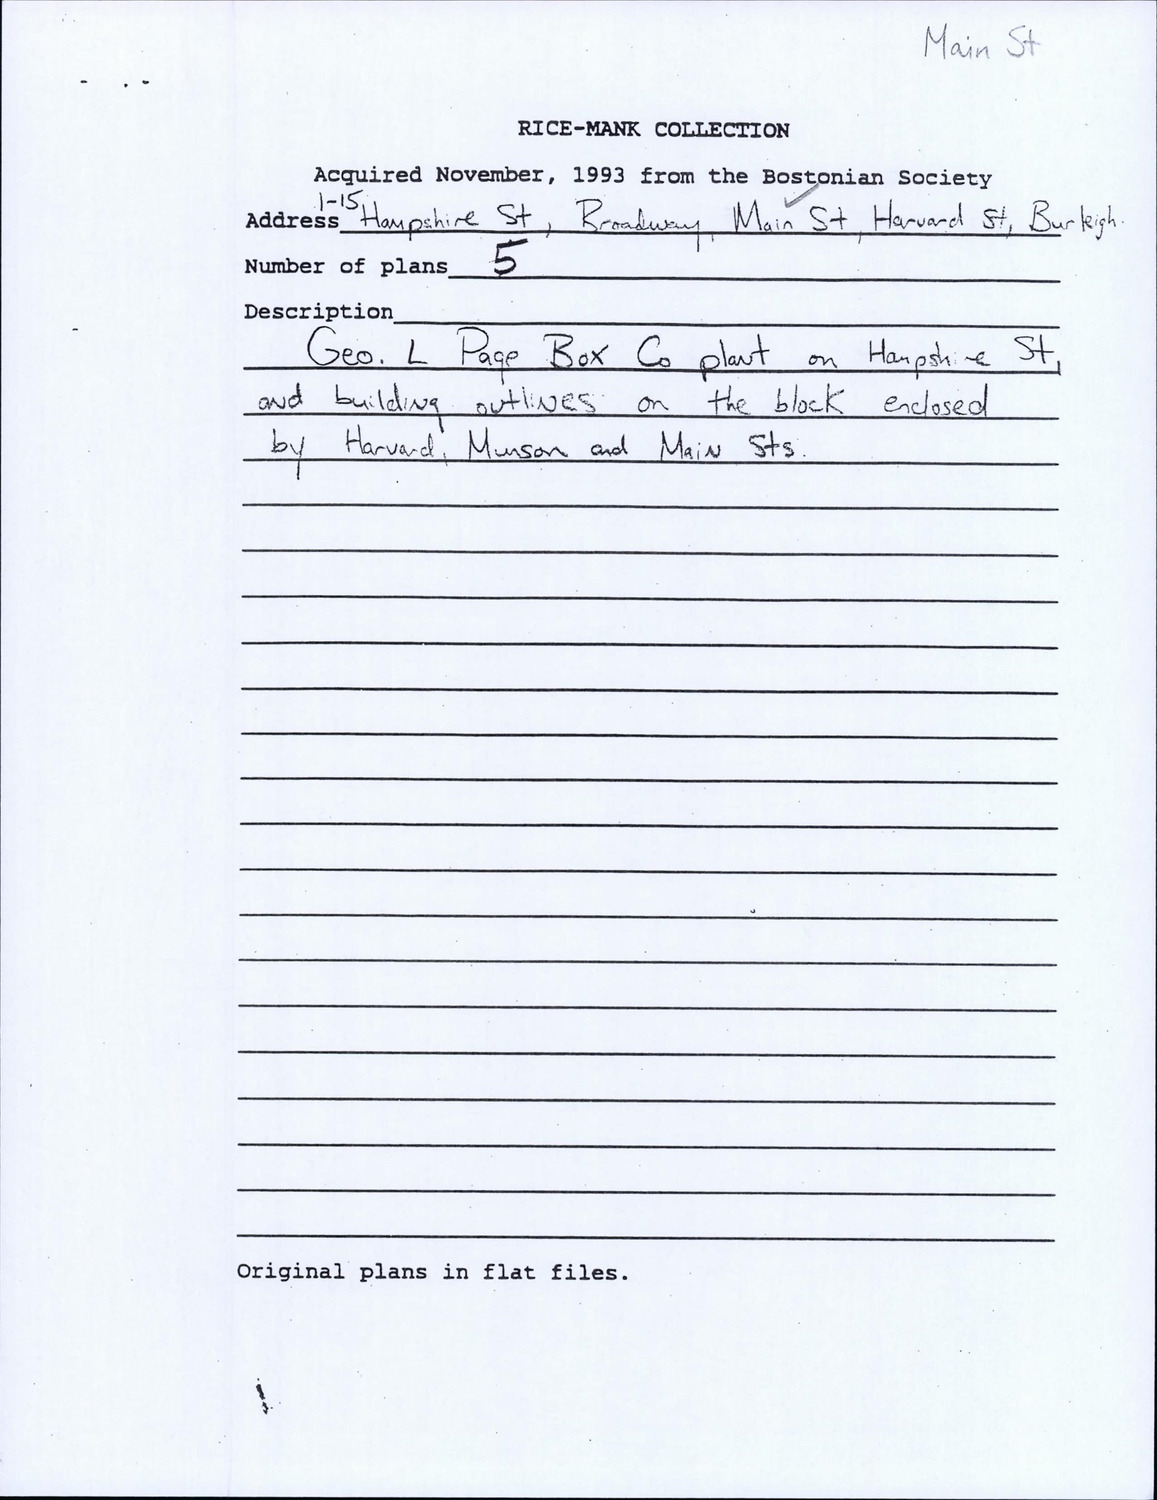 Main St
RICE-MANK COLLECTION
Acquired November, 1993 from the Bostonian Society
1-15
Address Hampshire St, Broadway, Main St, Harvard St, Burleigh.
Number of plans 5
Description
Geo. L Page Box Co plant on Hampshire St,
and building outlines on the block enclosed
by Harvard, Munson and Main Sts.
Original plans in flat files.